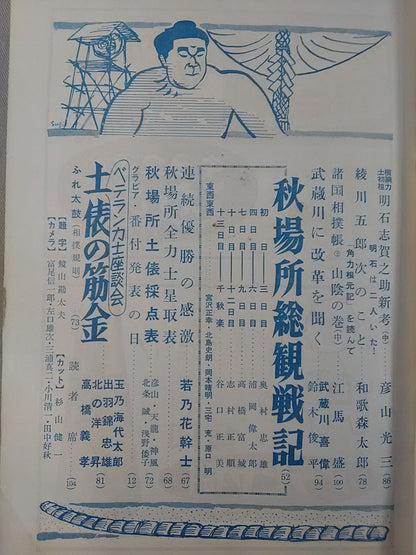 横綱力士列伝 明石志賀之助新考(中) 彦山光三 86
明石は二人いた!
綾川五郎次のこと 和歌森太郎 78
「角力根元記」を読んで
諸国相撲帳② 山陰の巻(中) 江馬盛 100
武蔵川に改革を聞く 武蔵川喜偉 鈴木俊平 94
秋場所総観戦記 (52)
初日――三日目 奥村忠雄
四日目――六日目 浦岡偉太郎
七日目――九日目 高橋富城
十日目――十二日目 志村正順
十三日目――千秋楽 谷口正美
東西東西 宮沢正幸・北島史朗・岡本晴明・三宅充・原口明
連続優勝の感激 若乃花幹士 67
秋場所全力士星取表 68
秋場所土俵採点表 彦山・天龍・神風 72
グラビア・番付発表の日 北条誠・浅野倭子 (12)
ベテラン力士座談会
土俵の筋金 玉乃海代太郎 出羽錦忠雄 北の洋昇 高橋義孝 81
ふれ太鼓(相撲規則) (73) 読者席 (104)
【題字】鏡山勘太夫 【カット】杉山健一
【カメラ】富尾信一郎・左口雄次・三浦真二・小川清一・田中好秋